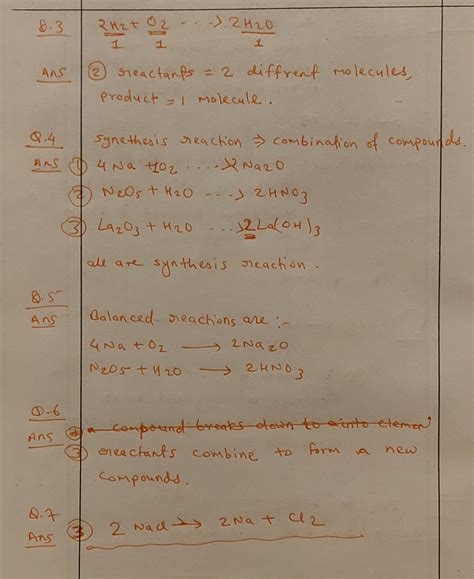 Q.3 2H2 + O2 ---> 2H2O
1 1 1
Ans ② reactants = 2 diffrent molecules,
product = 1 molecule.
Q.4 Synethesis reaction ⇒ combination of compounds.
Ans ① 4Na + O2 ----> 2Na2O
② N2O5 + H2O ---> 2HNO3
③ La2O3 + H2O ---> 2La(OH)3
all are synthesis reaction.
Q.5
Ans Balanced reactions are :-
4Na + O2 ⟶ 2Na2O
N2O5 + H2O ⟶ 2HNO3
Q.6
Ans a compound breaks down to into elemen
③ reactants combine to form a new
compounds.
Q.7
Ans ③ 2 NaCl ⟶ 2Na + Cl2